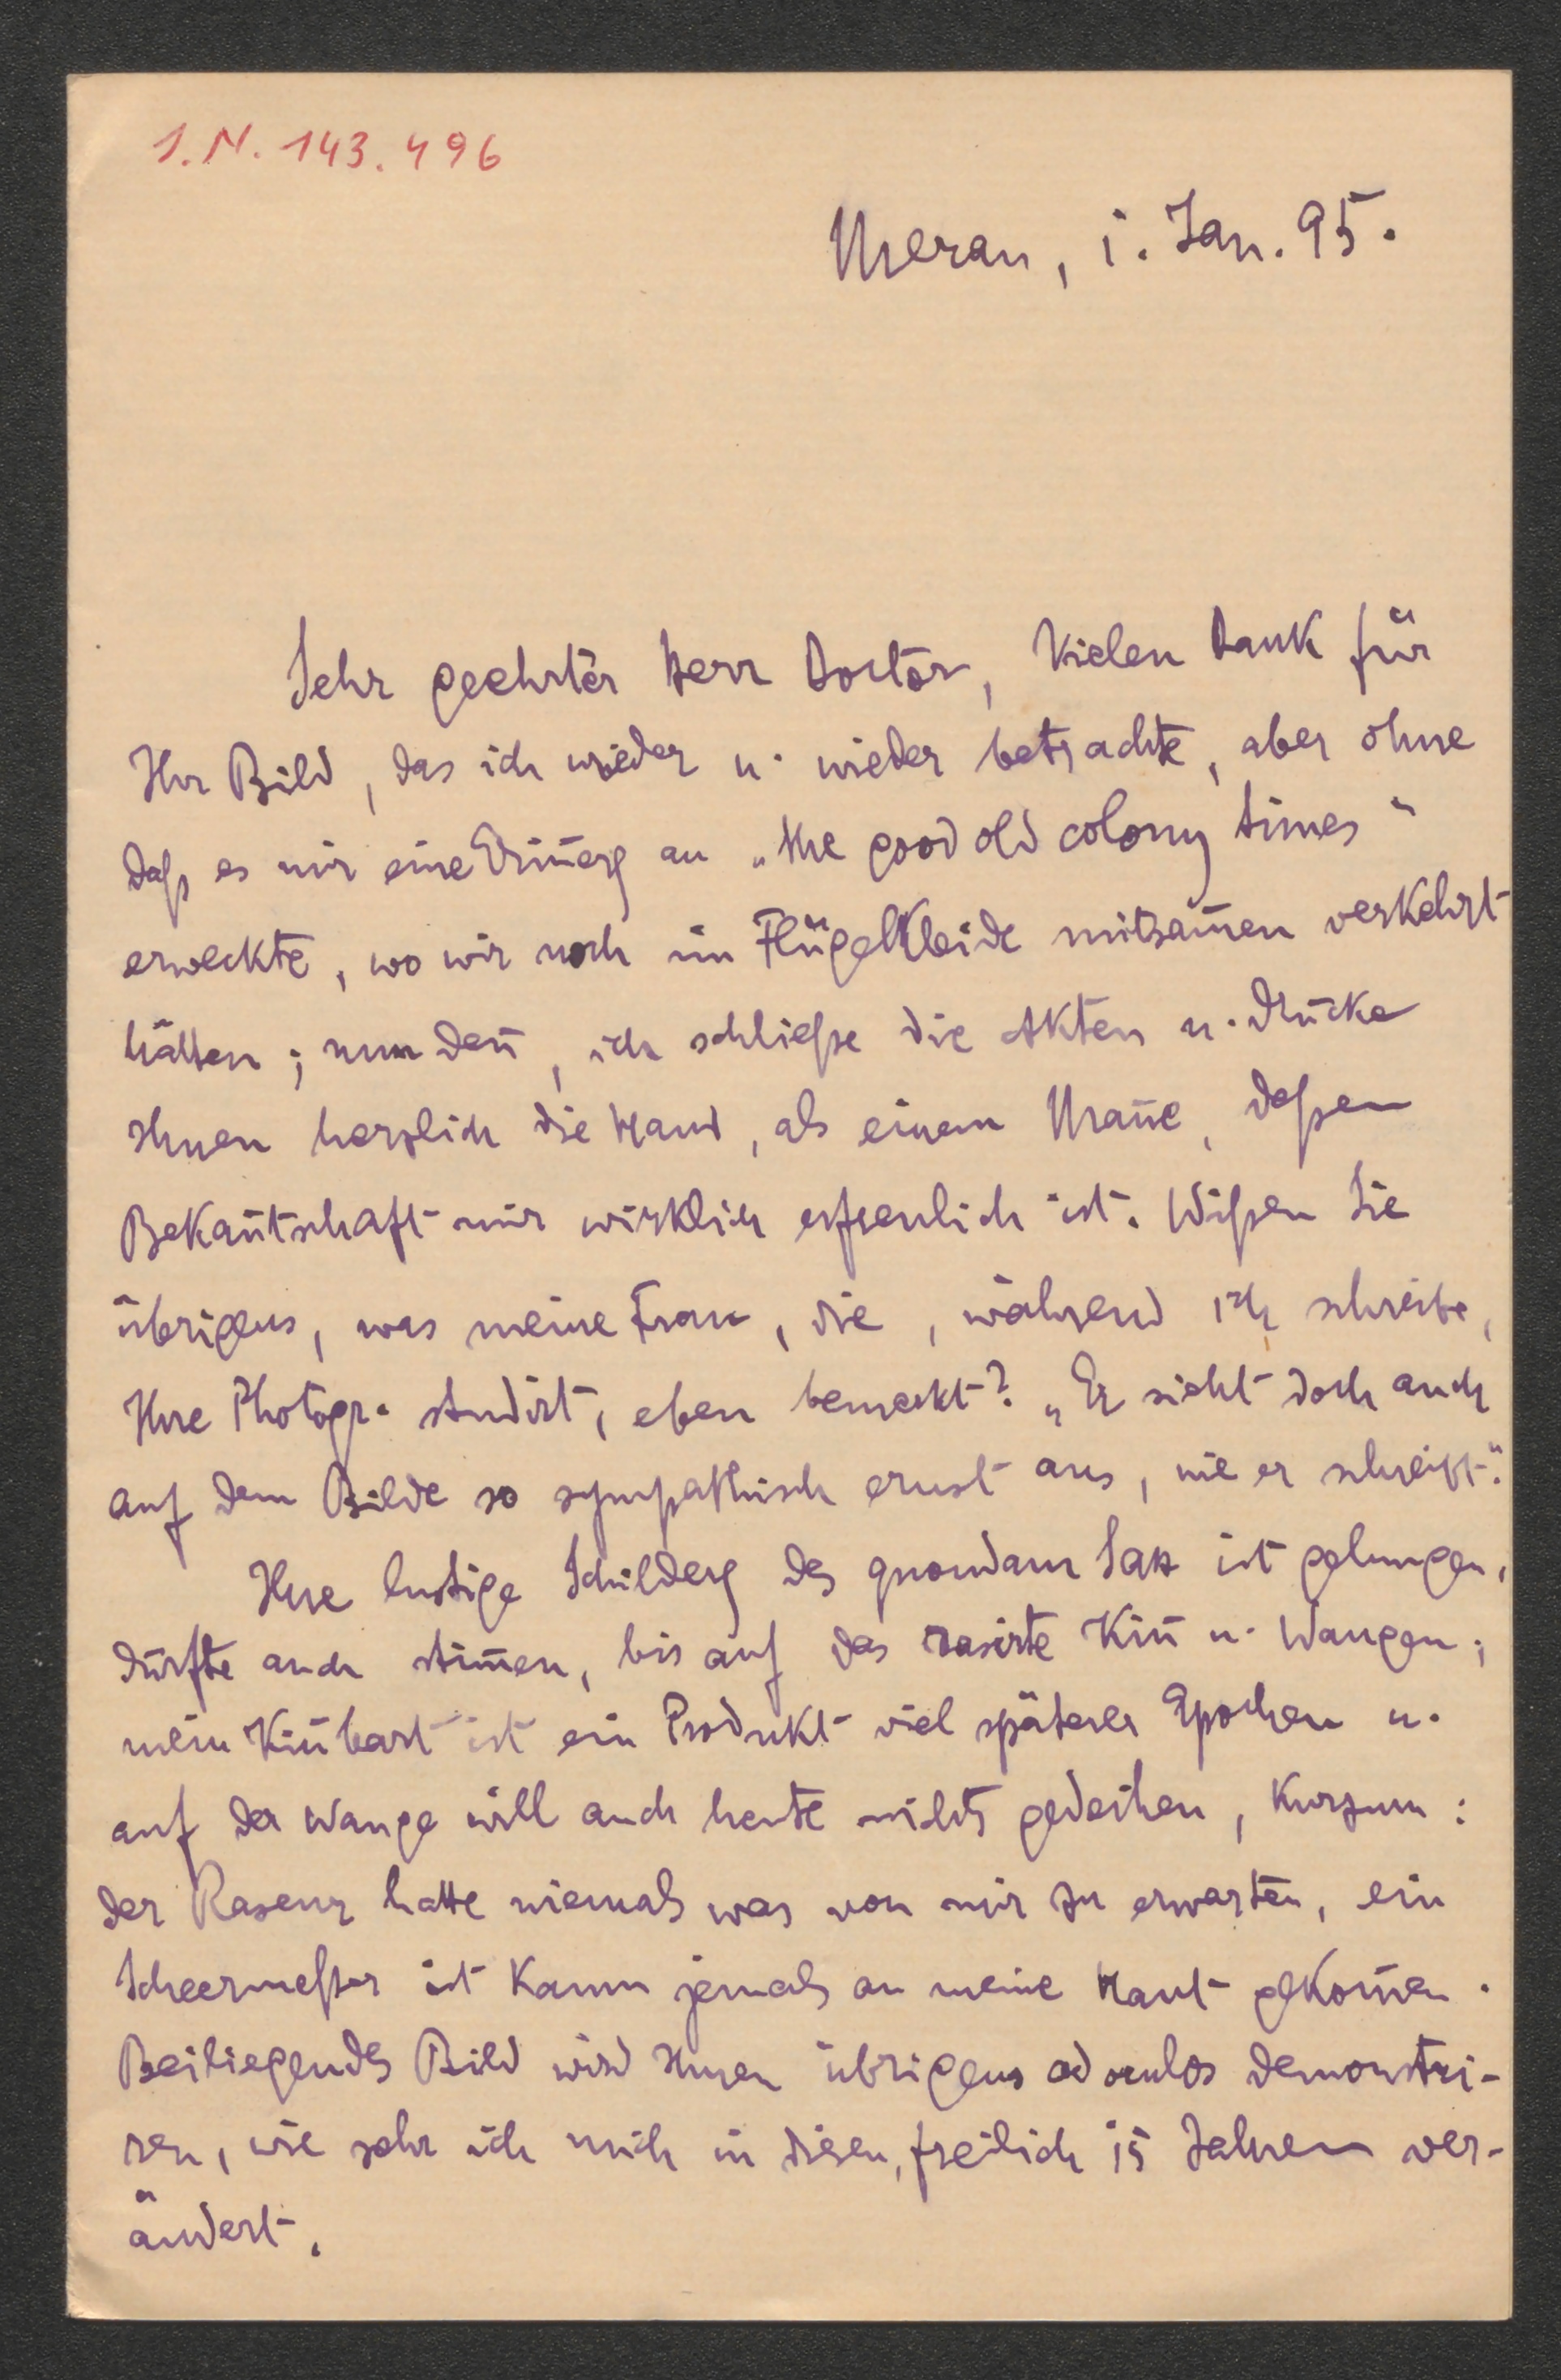 I.N. 143.496
Meran, 1. Jan. 95.
Sehr geehrter Herr Doctor, Vielen Dank für
Ihr Bild, das ich wieder u. wieder betrachte, aber ohne
daß es mir eine Erin̄erg an „the good old colony times“
erweckte, wo wir noch im Flügelkleide mitsam̄en verkehrt
hätten; nun den̄, ich schließe die Akten u. drücke
Ihnen herzlich die Hand, als einem Man̄e, deßen
Bekan̄tschaft mir wirklich erfreulich ist. Wißen Sie
übrigens, was meine Frau, die, während ich schreibe,
Ihre Photogr. studirt, eben bemerkt? „Er sieht doch auch
auf dem Bilde so sympathisch ernst aus, wie er schreibt.“
Ihre lustige Schilderg des quondam Sax ist gelungen,
dürfte auch stim̄en, bis auf das rasirte Kin̄ u. Wangen;
mein Kin̄bart ist ein Produkt viel späterer Epochen u.
auf der Wange will auch heute nichts gedeihen, kurzum:
der Raseur hatte niemals was von mir zu erwarten, ein
Scheermeßer ist kaum jemals an meine Haut gekom̄en.
Beiliegendes Bild wird Ihnen übrigens ad oculos demonstri-
ren, wie sehr ich mich in diesen, freilich 15 Jahren ver-
ändert.